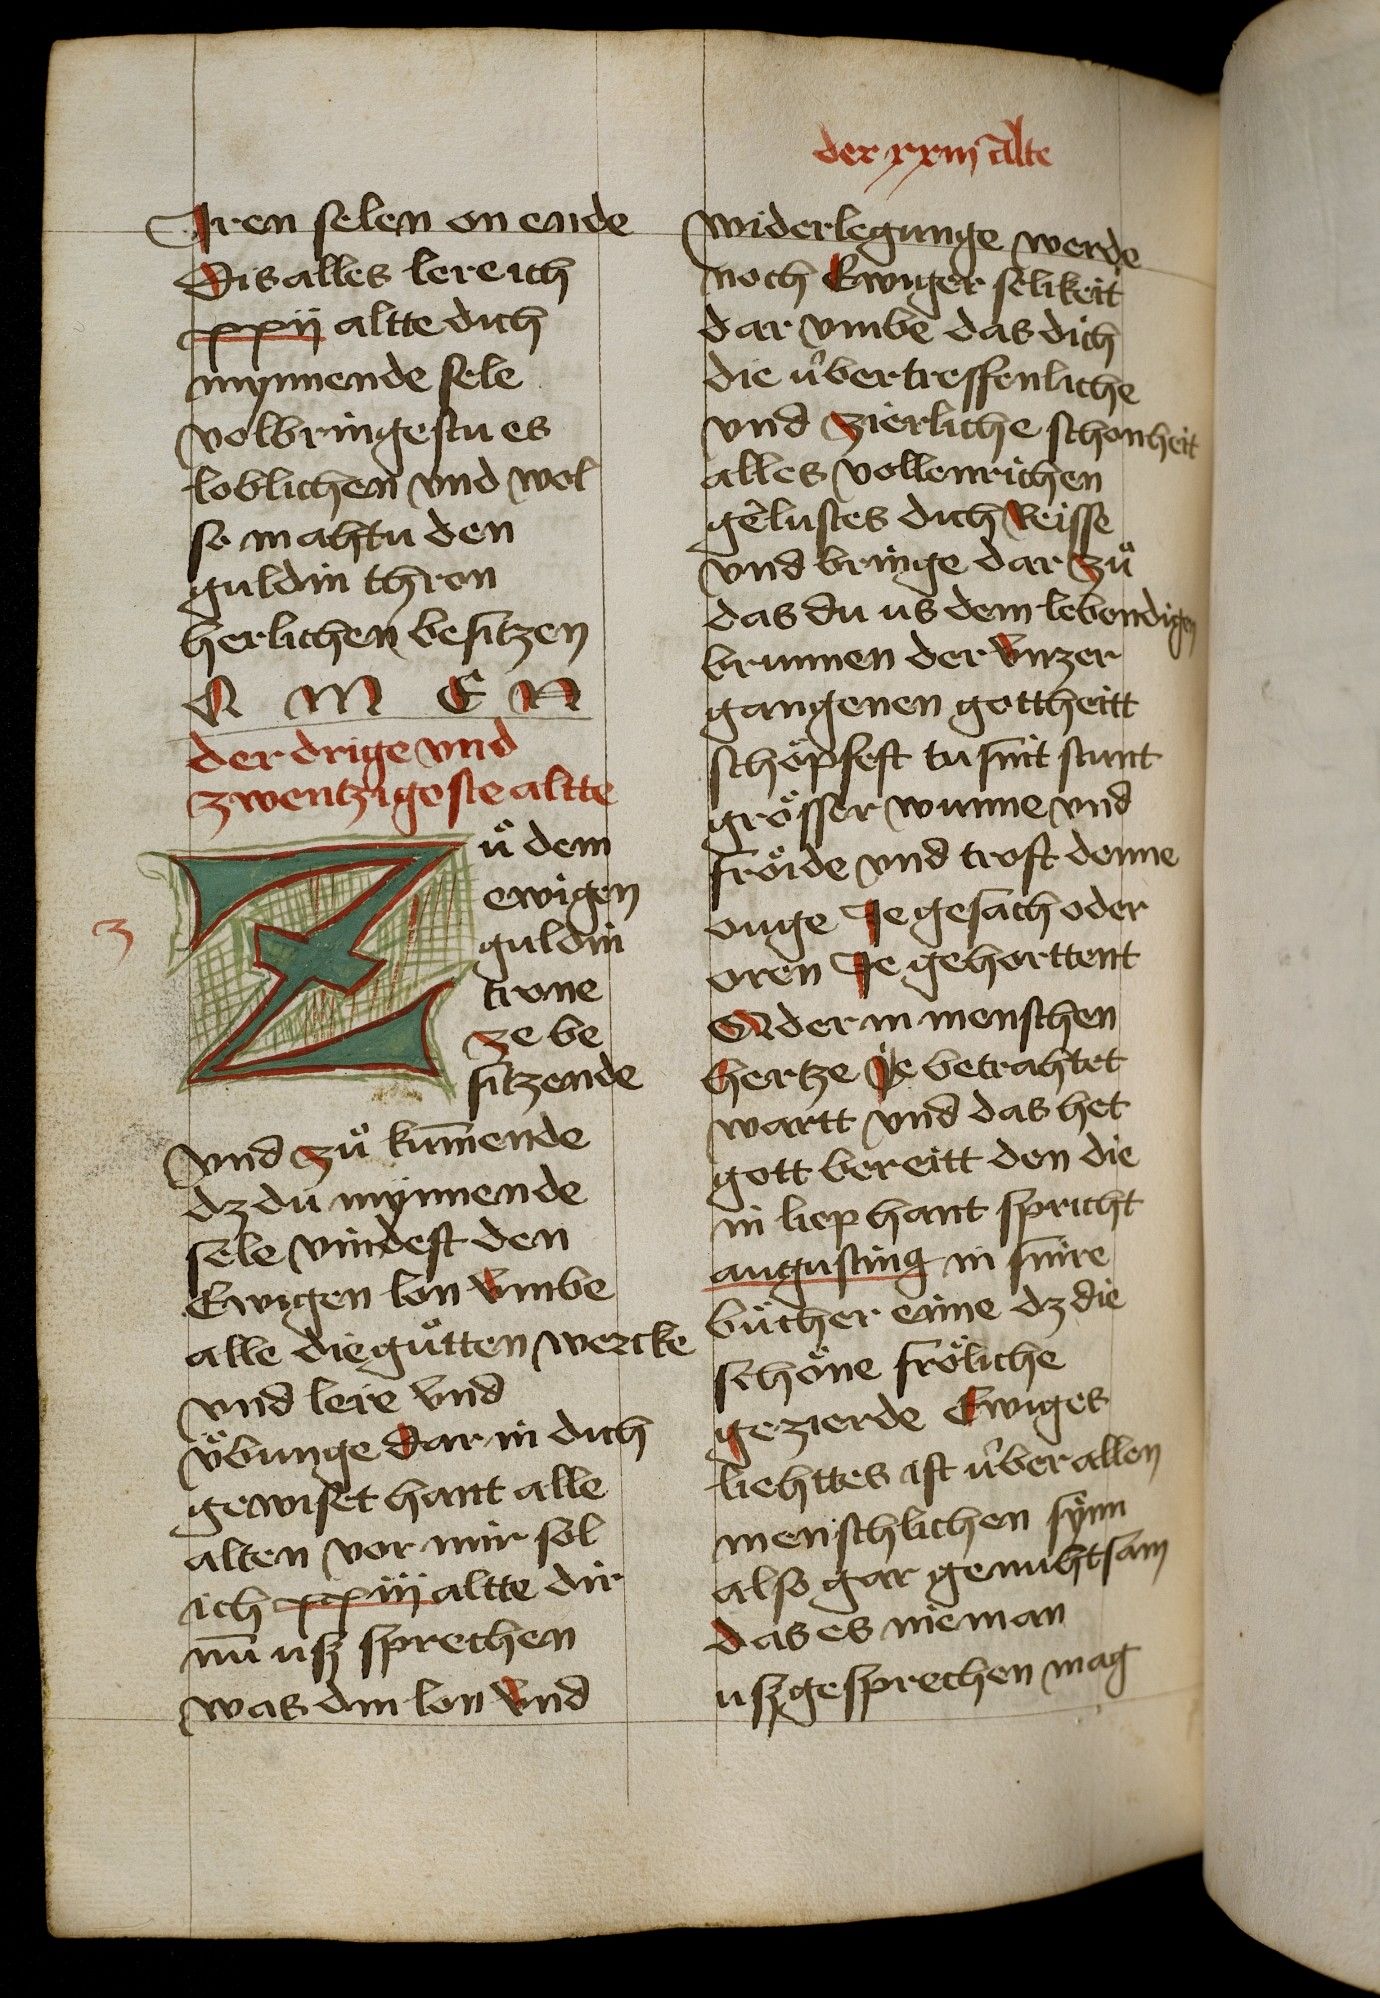 der xxiij alte
Iren selen on ende
Dis alles lere ich
xxij altte dich
mynnende sele
volbringestu es
loblichen vnd wol
so mahtu den
guldin thron
herlichen besitzen
A M E N
der drige vnd
zwentzigoste altte
Zuͦ dem
ewigen
guldin
trone
ze be
sitzende
vnd zuͦ kum̄ende
dz du mynnende
sele vindest den
Ewigen lon vmbe
alle die guͦtten wercke
vnd lere vnd
uͤbunge dar in dich
gewiset hant alle
alten vor mir sol
ich xxiij altte dir
nū usz sprechen
was din lon vnd
widerlegunge werde
noch Ewiger selikeit
dar vmbe das dich
die uͤbertreffenliche
vnd zierliche schonheit
alles vollenrichen
gelustes dich Reisse
vnd bringe dar zuͦ
das du us dem lebendigen
brunnen der vnzer
gangenen gottheitt
schöpfest tusint stunt
grösser wunne vnd
fröide vnd trost denne
ouge Ie gesach oder
oren Ie gehorttent
Oder in menschen
hertze Ie betrahtet
wartt vnd das het
gott bereitt den die
in liep hant spricht
augusting in sinre
buͤcher eime dz die
schöne fröliche
gezierde Ewiges
liehttes ist uͤber allen
menschlichen synn
also gar genuhtsam
das es nieman
usz gesprechen mag